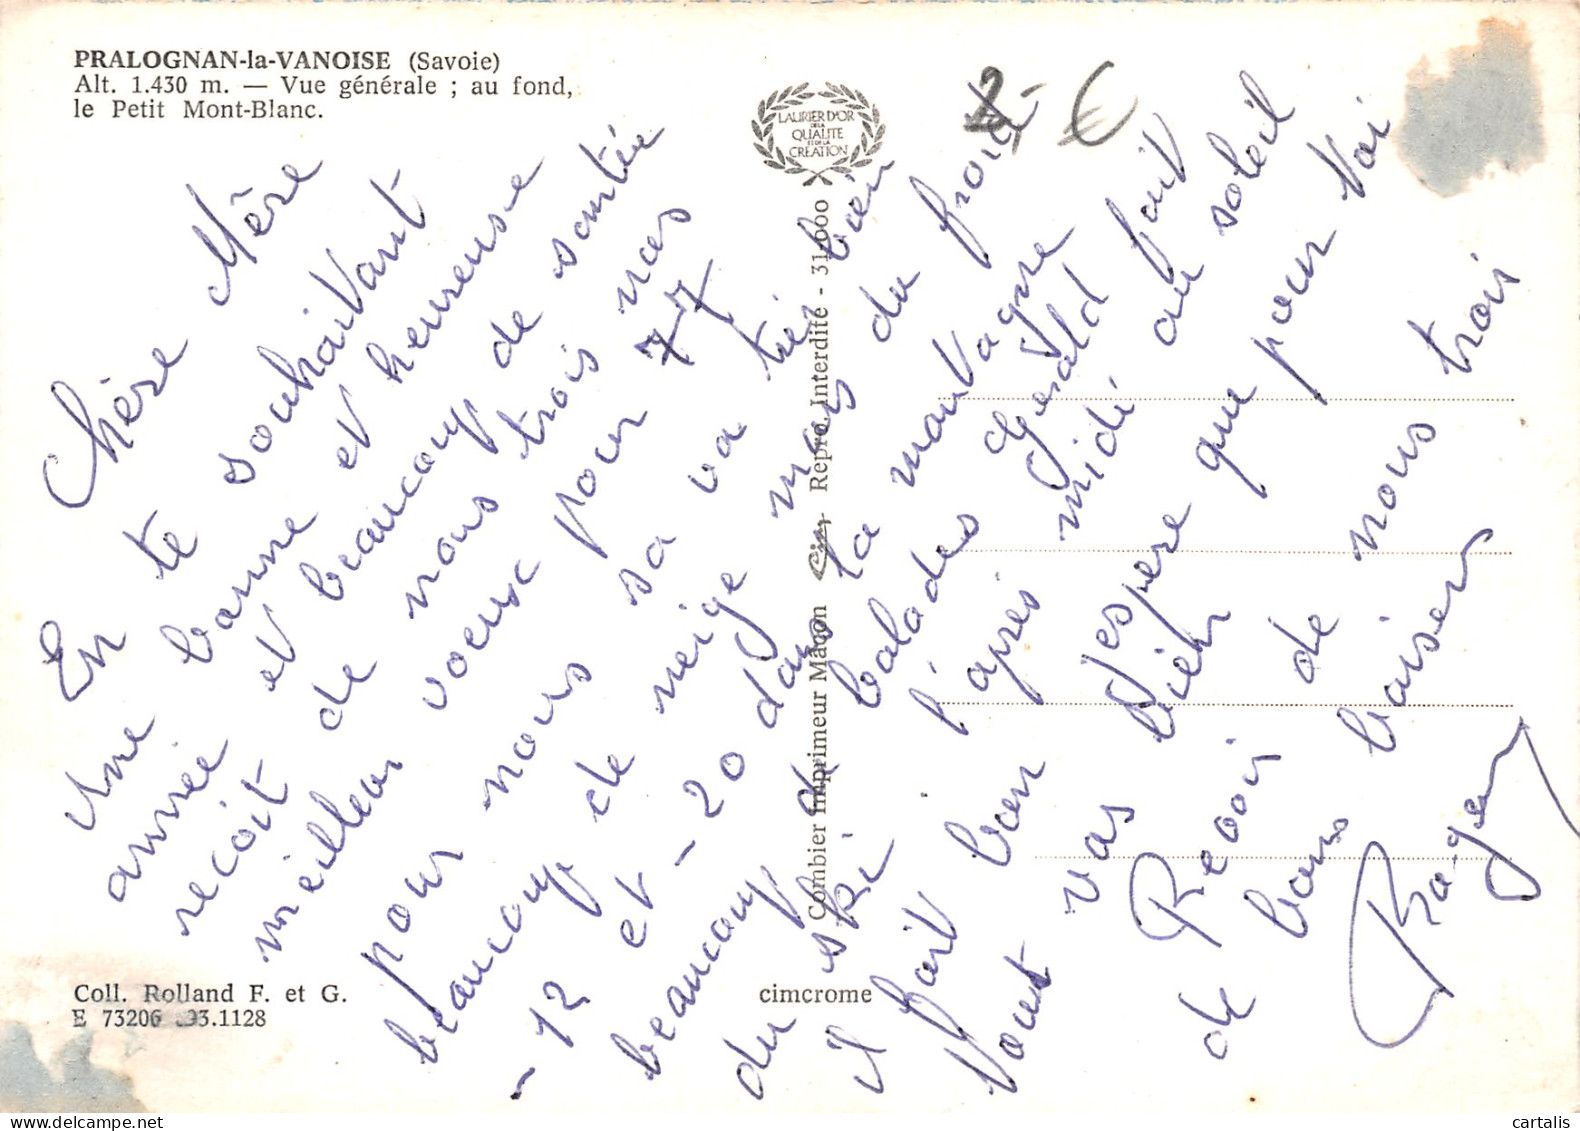 PRALOGNAN-la-VANOISE (Savoie)
Alt. 1.430 m. — Vue générale ; au fond,
le Petit Mont-Blanc.
LAURIER D'OR
DE LA
QUALITE
ET DE LA
CREATION
2 - €
Chère Mère
En te souhaitVant
une bonne et heureuse
année et beaucoup de santée
recoit de nous trois nos
meilleur voeux pour 77
pour nous sa va trei bien
beaucoup de neige mais du froid
-12 et -20 dans la montagne
beaucoup de balades Gerald fait
du ski l'après midi au soleil
il fait bon J'espere que pour toi
tout vas bien
Revoir de nous trois
de bons baisers
Roger
Combier Imprimeur Mâcon Cim Repro. Interdite - 31.000
Coll. Rolland F. et G.
E 73206 93.1128
cimcrome
cartalis